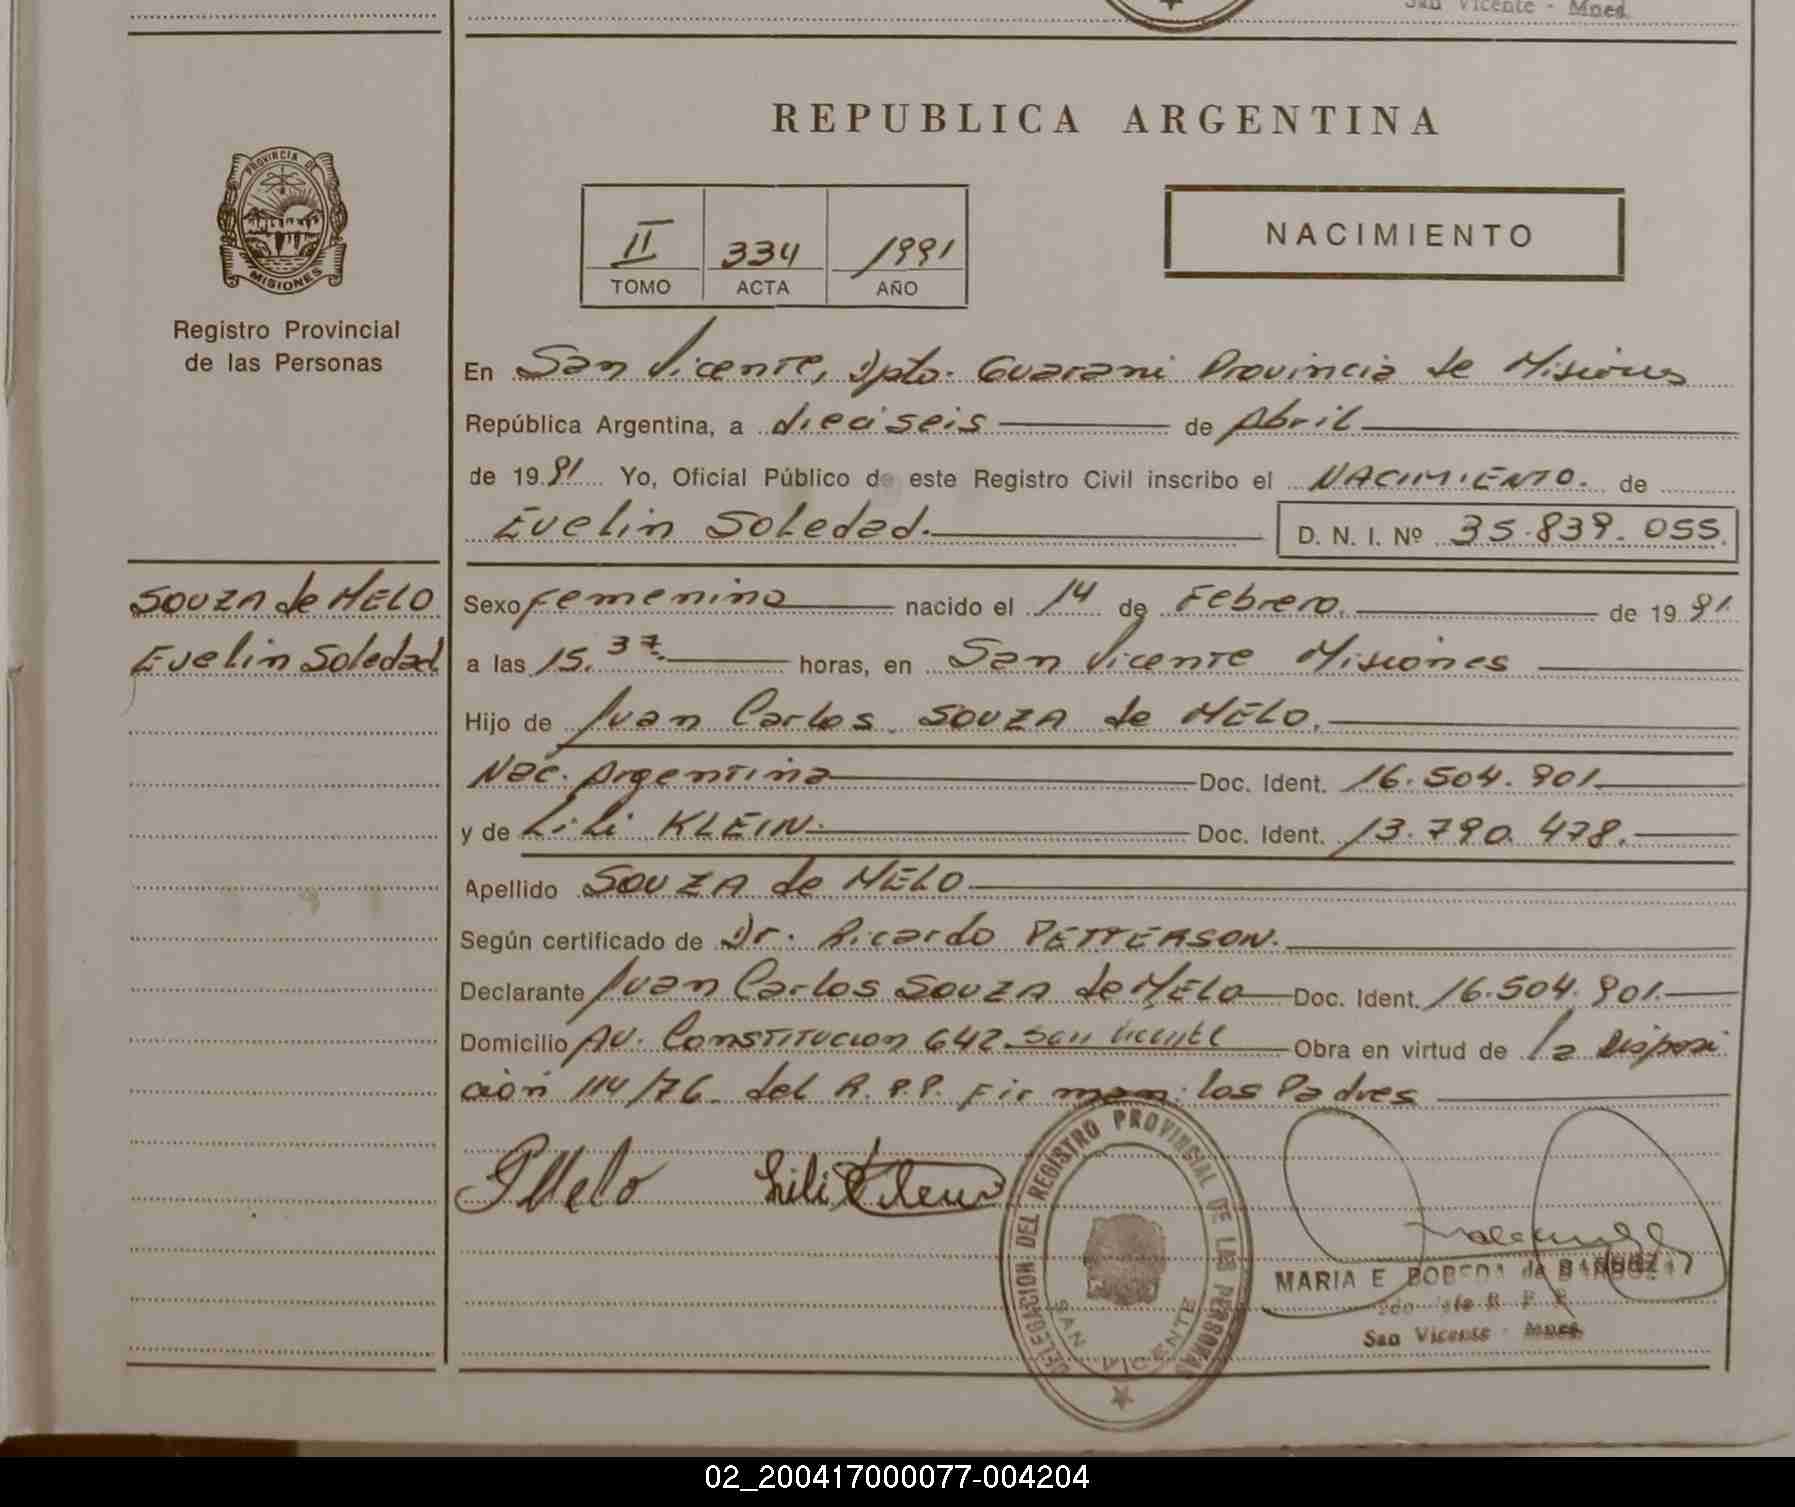 San Vicente - Mnes.
REPUBLICA ARGENTINA
PROVINCIA DE
MISIONES
Registro Provincial
de las Personas
II 334 1991
TOMO ACTA AÑO
NACIMIENTO
En San Vicente, Dpto. Guarani Provincia de Misiones
República Argentina, a dieciseis de Abril
de 1991 Yo, Oficial Público de este Registro Civil inscribo el NACIMIENTO. de
Evelin Soledad. D. N. I. Nº 35.839.055.
SOUZA de MELO
Evelin Soledad
Sexo femenino nacido el 14 de Febrero. de 1991.
a las 15.37. horas, en San Vicente Misiones
Hijo de Juan Carlos SOUZA de MELO.
Nac. Argentina Doc. Ident. 16.504.901.
y de Lili KLEIN. Doc. Ident. 13.790.478.
Apellido SOUZA de MELO
Según certificado de Dr. Ricardo PETTERSON.
Declarante Juan Carlos SOUZA de MELO Doc. Ident. 16.504.901.
Domicilio AV. Constitucion 642. San Vicente Obra en virtud de la Disposi
ción 114/76. del R.P.P. Firman: los Padres
Melo Lili Klein
DELEGACION DEL REGISTRO PROVINCIAL DE LAS PERSONAS
SAN VICENTE
MARIA E BOBEDA de
San Vicente - Mnes.
02_200417000077-004204